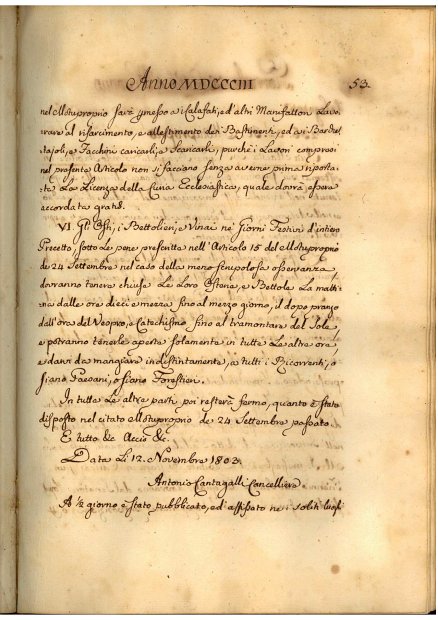 Anno MDCCCIII
53.
nel Motuproprio sarà p̃messo a i Calafati, ed' altri Manifattori Lavo,
rare al risarcimento, e allestimento de i Bastimenti, ed a i Barchet,
tajoli, e Facchini caricarli, e Scaricarli, purchè i Lavori compresi
nel presente Articolo non si facciano senza averne prima riporta,
ta La Licenza della Curia Ecclesiastica, quale dovrà essere
accordata gratis.
VI. Gli Osti, i Bettolieri, e Vinai ne' Giorni Festivi d'intiero
Precetto, sotto Le pene prescritte nell'Articolo 15 del Motuproprio
de 24 Settembre nel caso della meno scrupolosa osservanza,
dovranno tenere chiuse Le Loro Osterie, e Bettole La matti,
na dalle ore dieci e mezza fino al mezzo giorno, il dopo pranzo
dall'ora del Vespro, e Catechismo fino al tramontare del Sole,
e potranno tenerle aperte solamente in tutte Le altre ore
e darvi da mangiare indistintamente, a tutti i Ricorrenti, o
siano Paesani, o siano Forestieri.
In tutte Le altre parti poi resterà fermo, quanto è stato
disposto nel citato Motuproprio de 24 Settembre passato.
E tutto &c Acciò &c.
Data Li 12. Novembre 1803.
Antonio Cantagalli Cancelliere
A ½ giorno è stato pubblicato, ed affissato ne i soliti luoghi